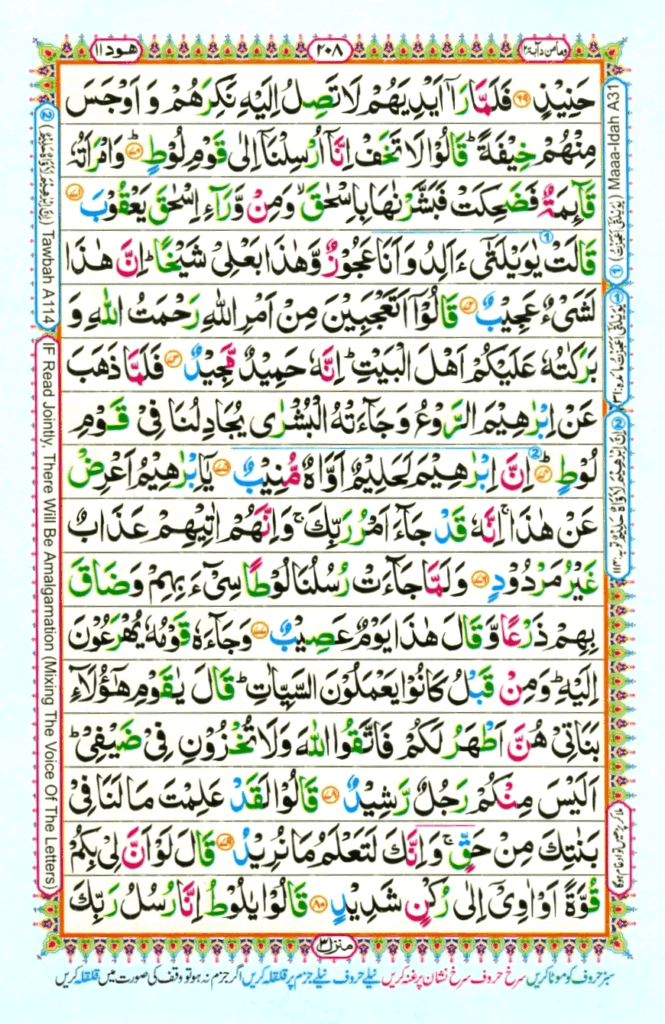 وما من دابة ١٢
٢٠٨
هود ١١
حَنِيْذٍ ﴿٦٩﴾ فَلَمَّا رَاٰۤ اَيْدِيَهُمْ لَا تَصِلُ اِلَيْهِ نَكِرَهُمْ وَ اَوْجَسَ
مِنْهُمْ خِيْفَةً ؕ قَالُوْا لَا تَخَفْ اِنَّاۤ اُرْسِلْنَاۤ اِلٰى قَوْمِ لُوْطٍ ﴿٧٠﴾ وَامْرَاَتُهٗ
قَآئِمَةٌ فَضَحِكَتْ فَبَشَّرْنٰهَا بِاِسْحٰقَ ۙ وَمِنْ وَّرَآءِ اِسْحٰقَ يَعْقُوْبَ ﴿٧١﴾
قَالَتْ يٰوَيْلَتٰٓى ءَاَلِدُ وَاَنَا عَجُوْزٌ وَّهٰذَا بَعْلِىْ شَيْخًا ؕ اِنَّ هٰذَا
لَشَىْءٌ عَجِيْبٌ ﴿٧٢﴾ قَالُوْۤا اَتَعْجَبِيْنَ مِنْ اَمْرِ اللّٰهِ رَحْمَتُ اللّٰهِ وَ
بَرَكٰتُهٗ عَلَيْكُمْ اَهْلَ الْبَيْتِ ؕ اِنَّهٗ حَمِيْدٌ مَّجِيْدٌ ﴿٧٣﴾ فَلَمَّا ذَهَبَ
عَنْ اِبْرٰهِيْمَ الرَّوْعُ وَجَآءَتْهُ الْبُشْرٰى يُجَادِلُنَا فِىْ قَوْمِ
لُوْطٍ ﴿٧٤﴾ اِنَّ اِبْرٰهِيْمَ لَحَلِيْمٌ اَوَّاهٌ مُّنِيْبٌ ﴿٧٥﴾ يٰۤاِبْرٰهِيْمُ اَعْرِضْ
عَنْ هٰذَا ۚ اِنَّهٗ قَدْ جَآءَ اَمْرُ رَبِّكَ ۚ وَاِنَّهُمْ اٰتِيْهِمْ عَذَابٌ
غَيْرُ مَرْدُوْدٍ ﴿٧٦﴾ وَلَمَّا جَآءَتْ رُسُلُنَا لُوْطًا سِىْٓءَ بِهِمْ وَضَاقَ
بِهِمْ ذَرْعًا وَّقَالَ هٰذَا يَوْمٌ عَصِيْبٌ ﴿٧٧﴾ وَجَآءَهٗ قَوْمُهٗ يُهْرَعُوْنَ
اِلَيْهِ ؕ وَمِنْ قَبْلُ كَانُوْا يَعْمَلُوْنَ السَّيِّاٰتِ ؕ قَالَ يٰقَوْمِ هٰٓؤُلَآءِ
بَنَاتِىْ هُنَّ اَطْهَرُ لَكُمْ فَاتَّقُوا اللّٰهَ وَلَا تُخْزُوْنِ فِىْ ضَيْفِىْ ؕ
اَلَيْسَ مِنْكُمْ رَجُلٌ رَّشِيْدٌ ﴿٧٨﴾ قَالُوْا لَقَدْ عَلِمْتَ مَا لَنَا فِىْ
بَنٰتِكَ مِنْ حَقٍّ ۚ وَاِنَّكَ لَتَعْلَمُ مَا نُرِيْدُ ﴿٧٩﴾ قَالَ لَوْ اَنَّ لِىْ بِكُمْ
قُوَّةً اَوْ اٰوِىْۤ اِلٰى رُكْنٍ شَدِيْدٍ ﴿٨٠﴾ قَالُوْا يٰلُوْطُ اِنَّا رُسُلُ رَبِّكَ
منزل ٣
سبز حروف کو موٹا کریں سرخ حروف سرخ نشان پر غنہ کریں نیلے حروف نیلے جزم پر قلقلہ کریں اگر جزم نہ ہو تو وقف کی صورت میں قلقلہ کریں
① (يٰوَيْلَتٰٓى اَعَجَزْتُ) Maaa-Idah A31
① يٰوَيْلَتٰٓى اَعَجَزْتُ مائدہ:٣١
② اِنَّ اِبْرٰهِيْمَ لَاَوَّاهٌ حَلِيْمٌ توبہ:١١٤
ملا کر پڑھیں تو ادغام ہوگا
② (اِنَّ اِبْرٰهِيْمَ لَاَوَّاهٌ حَلِيْمٌ) Tawbah A114
IF Read Jointly, There Will Be Amalgamation (Mixing The Voice Of The Letters)